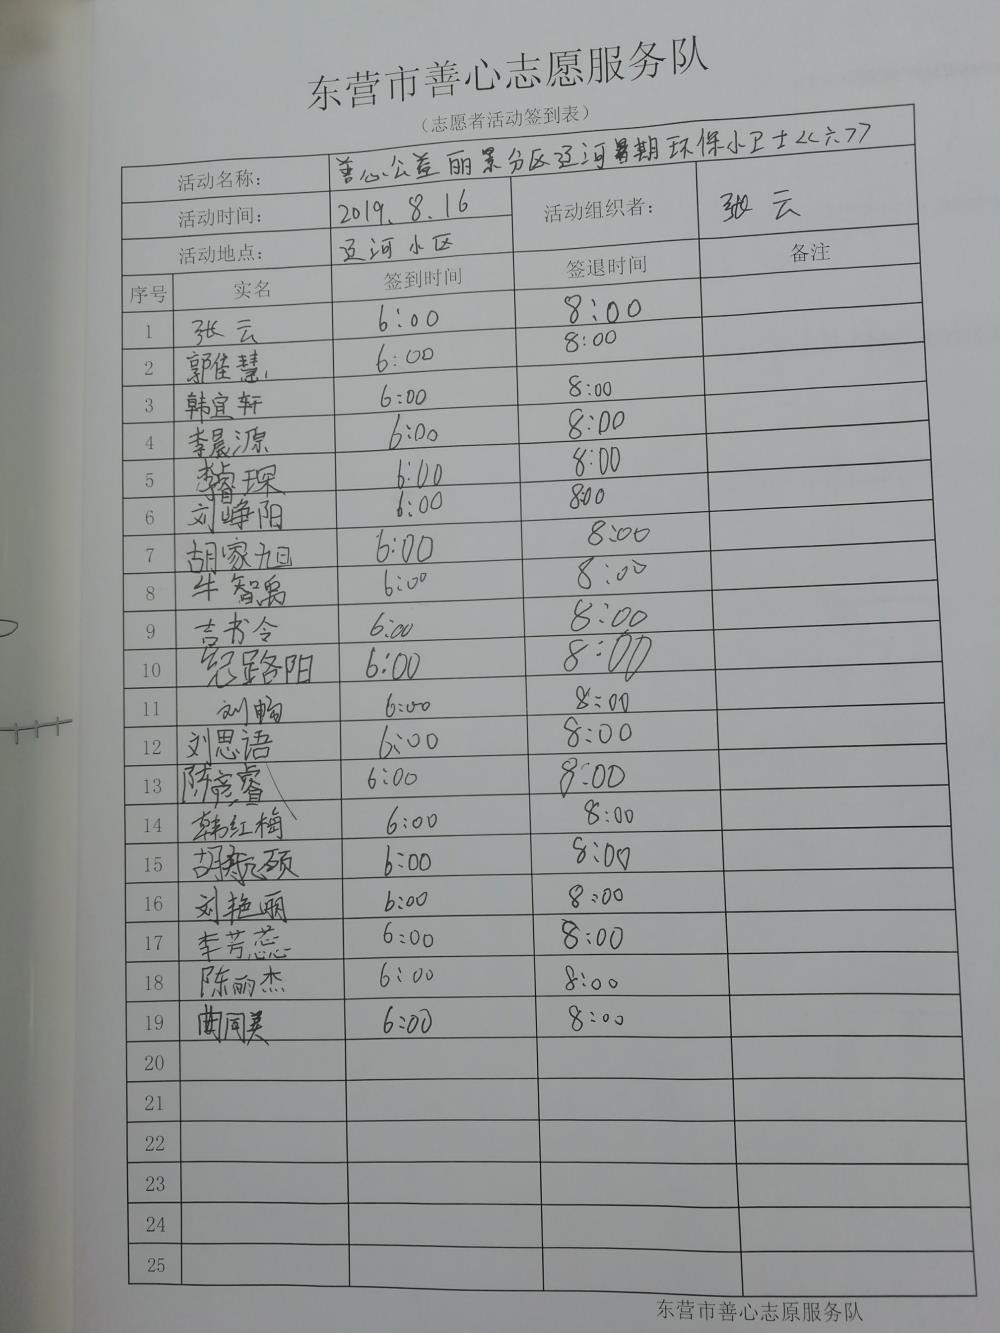 东营市善心志愿服务队
（志愿者活动签到表）
活动名称： 善心公益丽景分区辽河暑期环保小卫士<<六>>
活动时间： 2019.8.16 活动组织者： 张云
活动地点： 辽河小区
序号 实名 签到时间 签退时间 备注
1 张云 6:00 8:00
2 郭佳慧 6:00 8:00
3 韩宜轩 6:00 8:00
4 李晨源 6:00 8:00
5 李睿琛 6:00 8:00
6 刘峥阳 6:00 8:00
7 胡家旭 6:00 8:00
8 牛智禹 6:00 8:00
9 书令 6:00 8:00
10 路阳 6:00 8:00
11 刘畅 6:00 8:00
12 刘思语 6:00 8:00
13 陈彦睿 6:00 8:00
14 韩红梅 6:00 8:00
15 胡 硕 6:00 8:00
16 刘艳丽 6:00 8:00
17 李芳蕊 6:00 8:00
18 陈丽杰 6:00 8:00
19 曲同美 6:00 8:00
20
21
22
23
24
25
东营市善心志原服务队